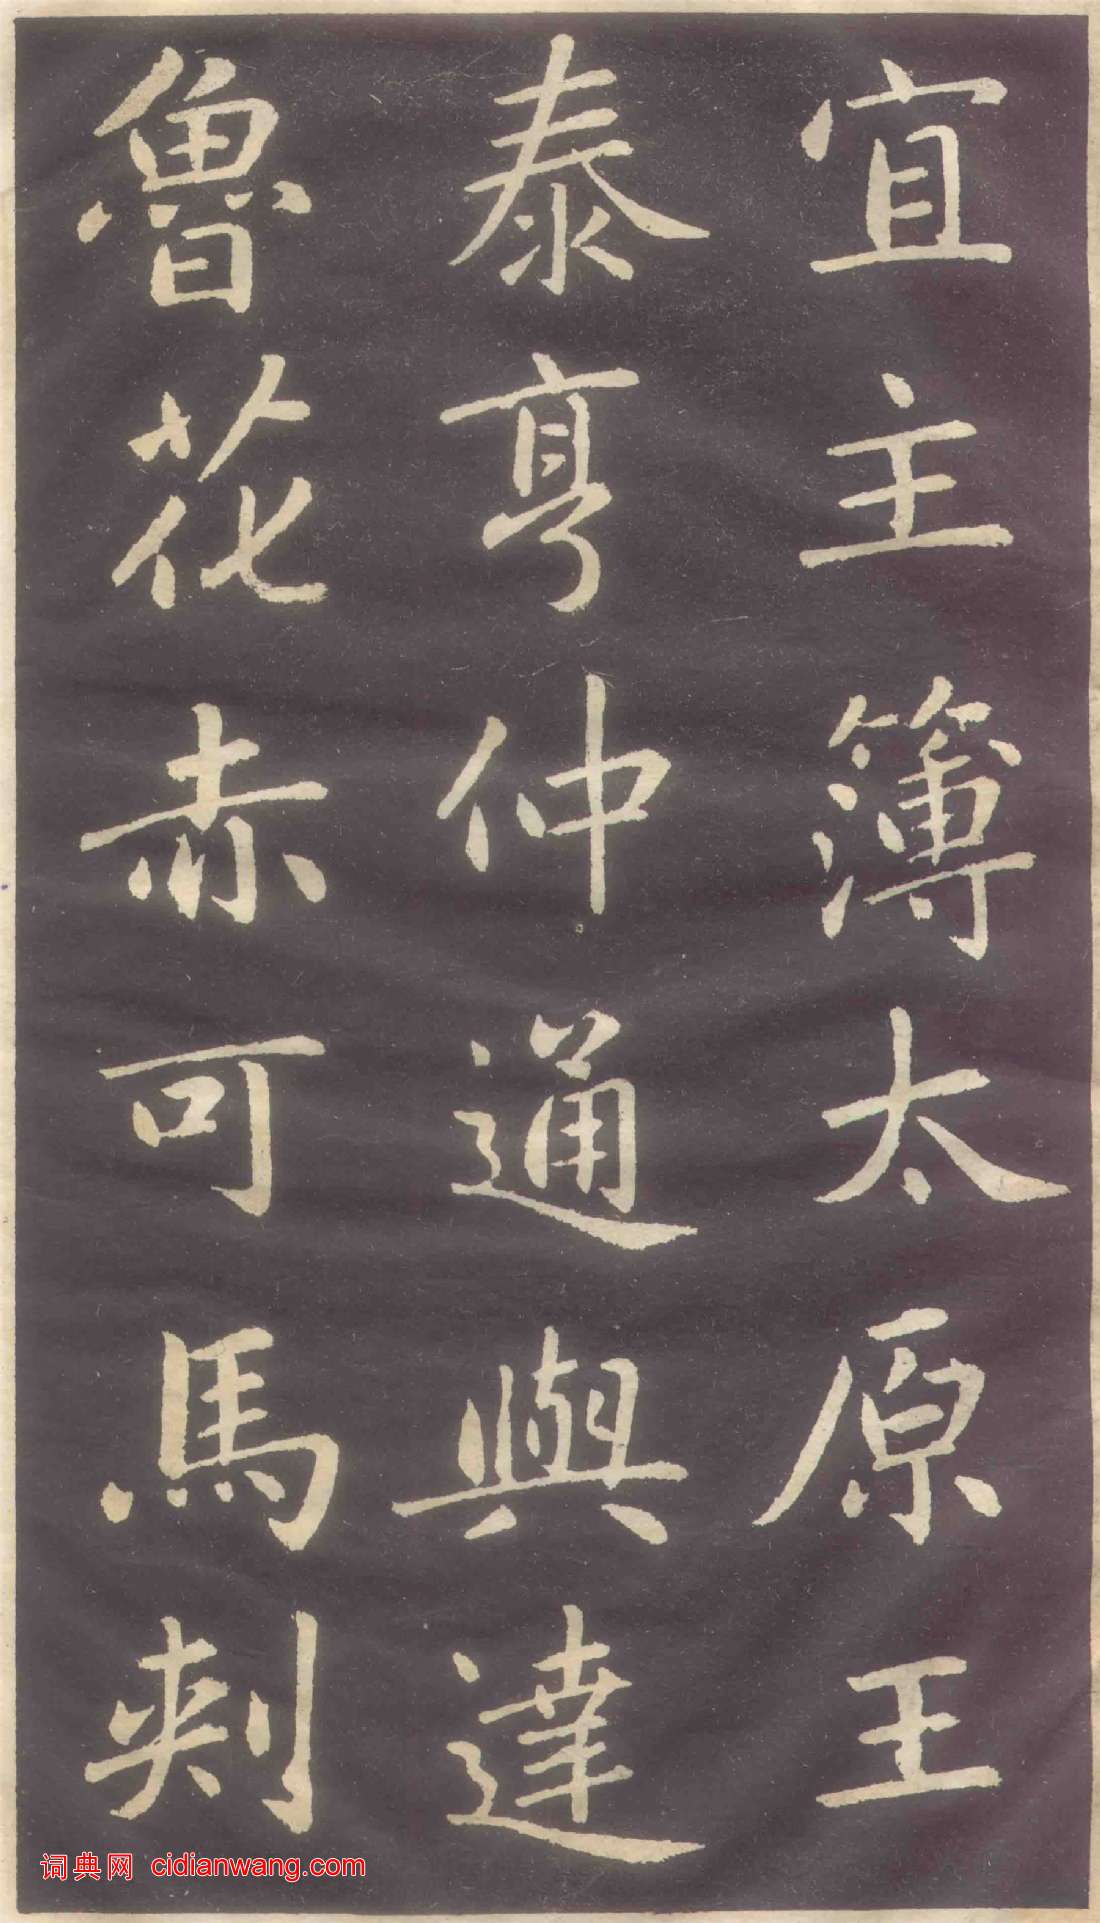 宜主簿太原王
泰亨仲通與達
魯花赤可馬剌
词典网 cidianwang.com